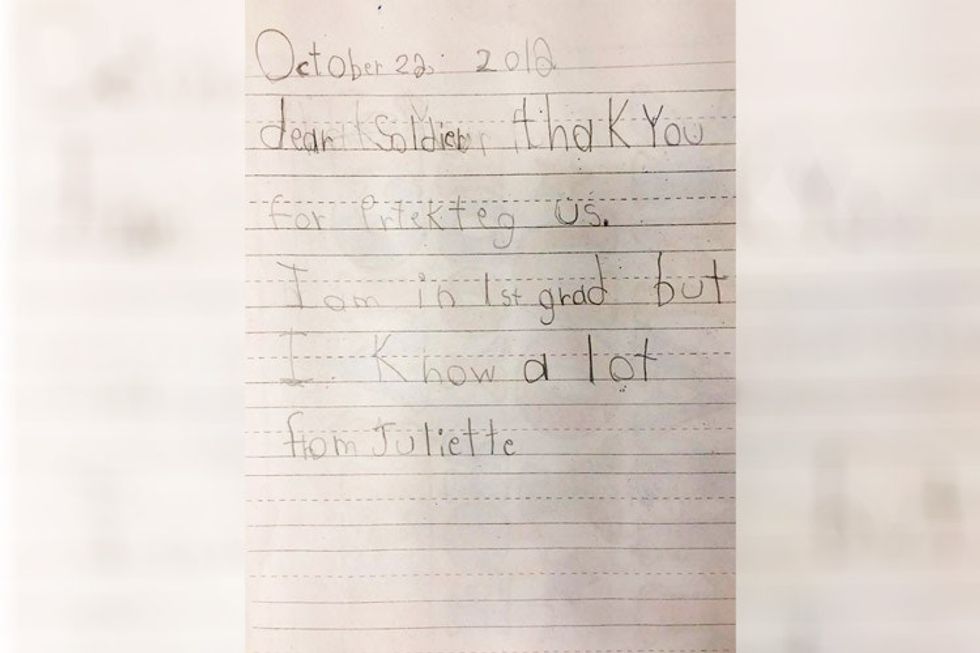 October 22, 2012
dear Soldier thak You
for Prtekteg us.
I am in 1st grad but
I Know a lot
from Juliette